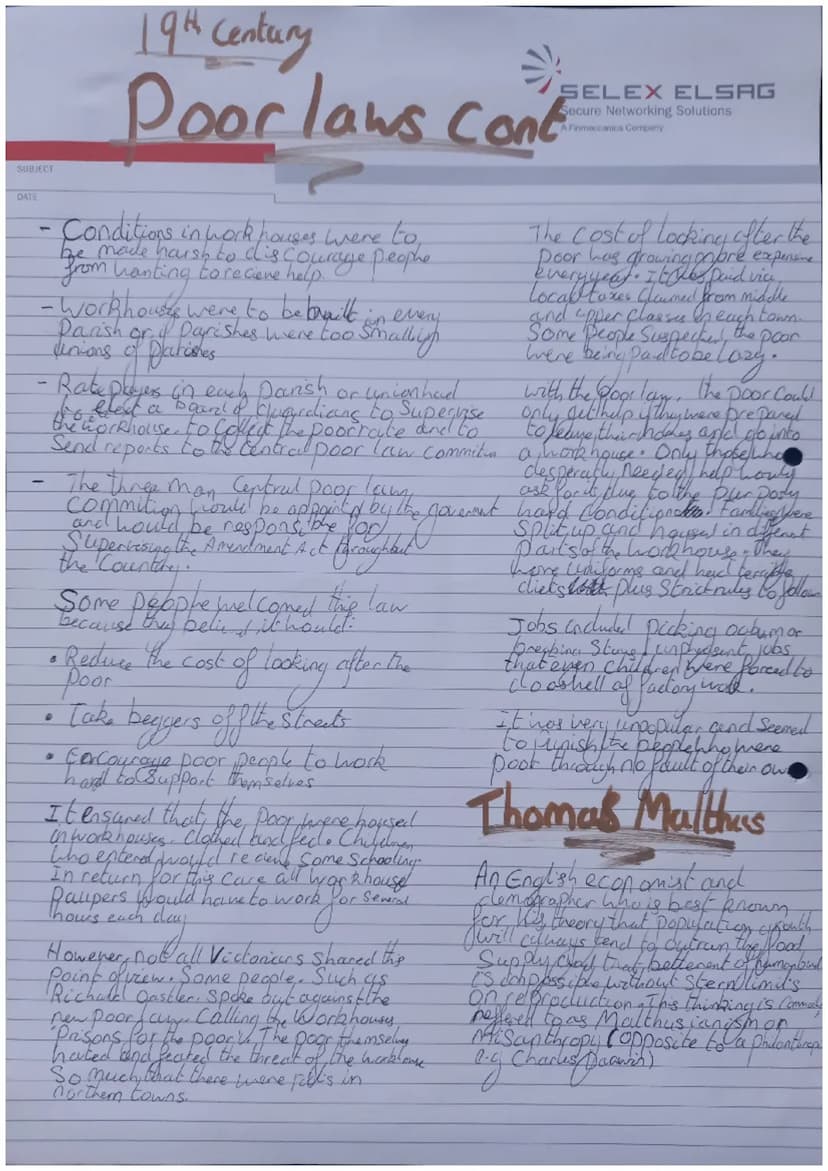 19th Century
Poor laws Cont
SELEX ELSAG
Secure Networking Solutions
A Finmeccanica Company
SUBJECT
DATE
- Conditions in work houses were to
be made harsh to discourage people
from wanting to recieve help.
- Workhouses were to be built in every
Parish or if Parishes were too small in
unions of Parishes
- Rate players in each Parish or union had
to elect a board of Guardians to Supervise
the workhouse, to collect the poor rate and to
Send reports to the Central poor law
- The three man Central poor law
would be appointed by the
and would be responsible for
Supervising the Amendment Act throughout
the Country.
Some people welcomed this law
because they it would:
• Reduce the cost of looking after the
Poor
• Take beggers off the streets
• Encourage poor people to work
hard to Support themselves
It ensured that the Poor were housed
in workhouses. Clothed and fed. Children
who entered would recieve some schooling.
In return for this care all workhouse
Paupers would have to work for several
hours each day
However, not all Victorians shared the
Point of view. Some people, Such as
Richard Oastler, spoke out against the
new Poor Law, Calling the Workhouses
'Prisons for the poor'. The poor themselves
hated and feared the threat of the workhouse
So much that there were in
northern towns.
The cost of looking after the
poor was growing more expensive
every year. It was paid via
local taxes claimed from middle
and upper classes in each town.
Some People Suspected the poor
were being paid to be lazy.
with the poor law, the poor could
only get help if they were prepared
to leave their homes and go into
a workhouse. Only those who
desperatly needed help would
ask for it due to the
hard conditions. Families were
split up and housed in
Parts of the workhouse. They
wore uniforms and had terrible
diets plus strict rules to follow
Jobs included picking or
breaking Stones, jobs
that even children were forced to
do as well as factory work.
It was very unpopular and seemed
to punish the people who were
poor through no fault of their own
Thomas Malthus
An English economist and
demographer who is best known
for his theory that population growth
will always tend to outrun the food
Supply and that betterment of
is impossible without stern limits
on reproduction. This thinking is
to as Malthusianism or
Misanthropy (opposite to a
e.g Charles Darwin)